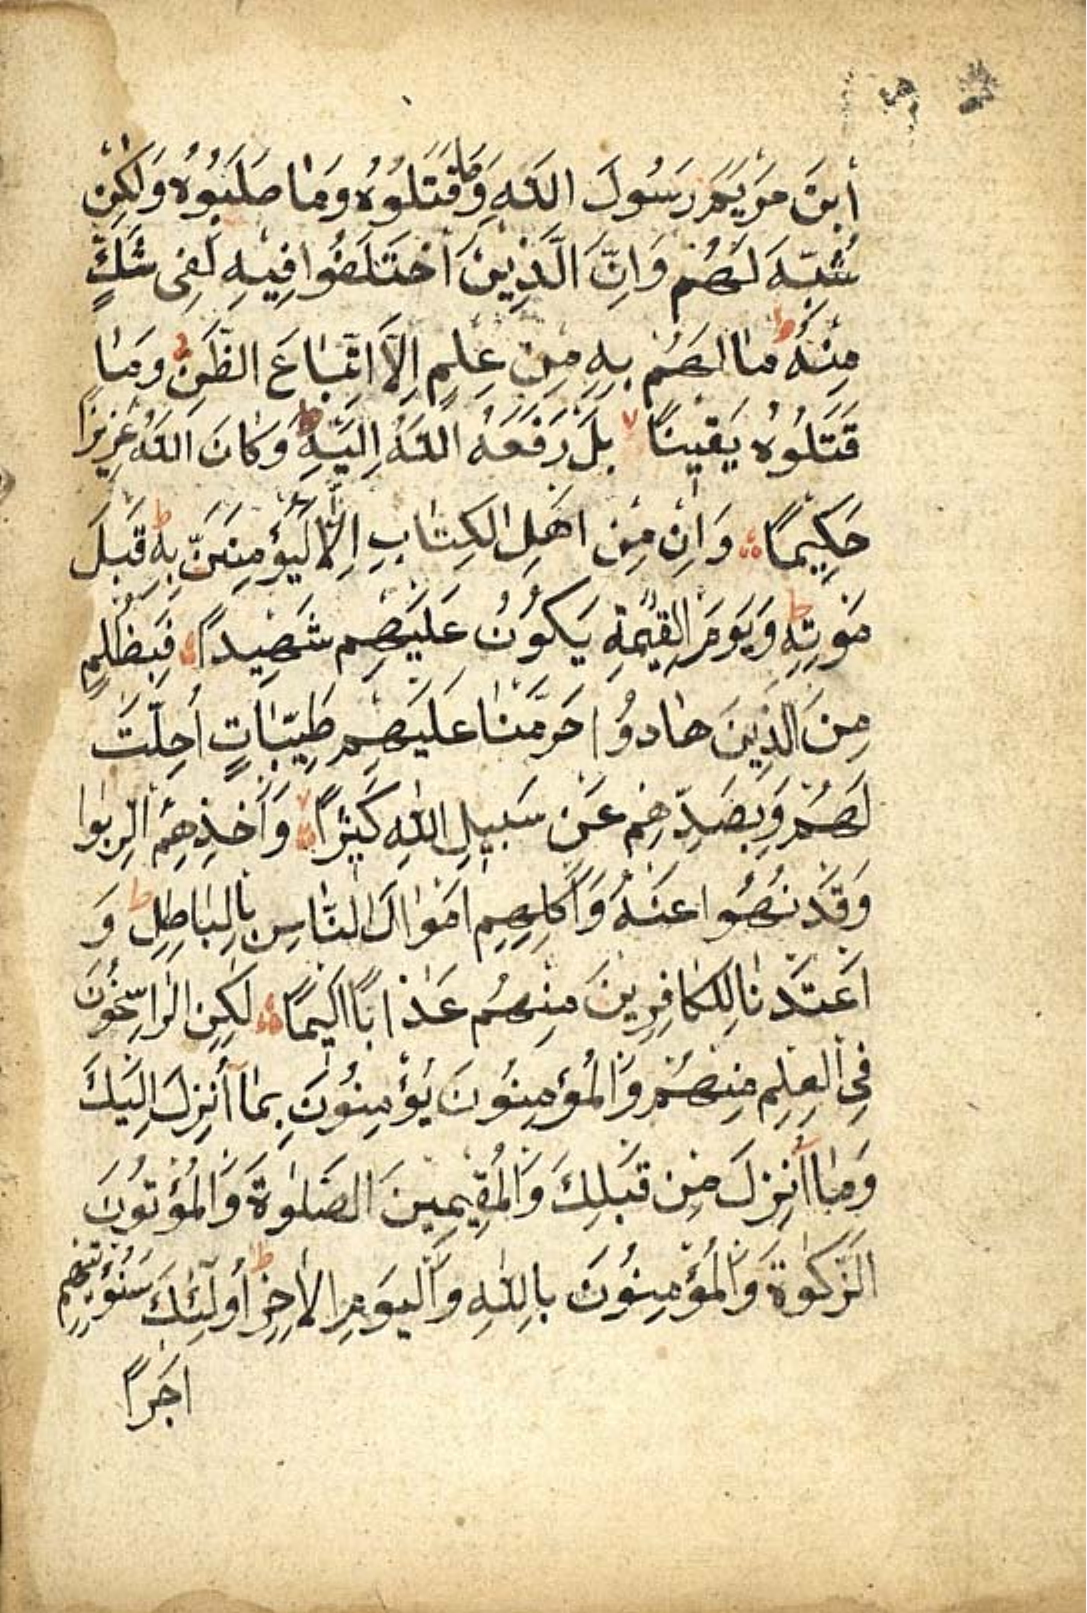 ابْنَ مَرْيَمَ رَسُولَ اللّٰهِ وَمَا قَتَلُوهُ وَمَا صَلَبُوهُ وَلٰكِنْ
شُبِّهَ لَهُمْ وَاِنَّ الَّذِينَ اخْتَلَفُوا فِيهِ لَفِى شَكٍّ
مِنْهُ ط مَا لَهُمْ بِهِ مِنْ عِلْمٍ اِلَّا اتِّبَاعَ الظَّنِّ وَمَا
قَتَلُوهُ يَقِينًا بَلْ رَفَعَهُ اللّٰهُ اِلَيْهِ ط وَكَانَ اللّٰهُ عَزِيزًا
حَكِيمًا وَاِنْ مِنْ اَهْلِ الْكِتَابِ اِلَّا لَيُؤْمِنَنَّ بِهِ قَبْلَ
مَوْتِهِ ط وَيَوْمَ الْقِيٰمَةِ يَكُونُ عَلَيْهِمْ شَهِيدًا فَبِظُلْمٍ
مِنَ الَّذِينَ هَادُوا حَرَّمْنَا عَلَيْهِمْ طَيِّبَاتٍ اُحِلَّتْ
لَهُمْ وَبِصَدِّهِمْ عَنْ سَبِيلِ اللّٰهِ كَثِيرًا وَاَخْذِهِمُ الرِّبٰوا
وَقَدْ نُهُوا عَنْهُ وَاَكْلِهِمْ اَمْوَالَ النَّاسِ بِالْبَاطِلِ ط وَ
اَعْتَدْنَا لِلْكَافِرِينَ مِنْهُمْ عَذَابًا اَلِيمًا لٰكِنِ الرَّاسِخُونَ
فِي الْعِلْمِ مِنْهُمْ وَالْمُؤْمِنُونَ يُؤْمِنُونَ بِمَا اُنْزِلَ اِلَيْكَ
وَمَا اُنْزِلَ مِنْ قَبْلِكَ وَالْمُقِيمِينَ الصَّلٰوةَ وَالْمُؤْتُونَ
الزَّكٰوةَ وَالْمُؤْمِنُونَ بِاللّٰهِ وَالْيَوْمِ الْاٰخِرِ ط اُولٰئِكَ سَنُؤْتِيهِمْ
اَجْرًا